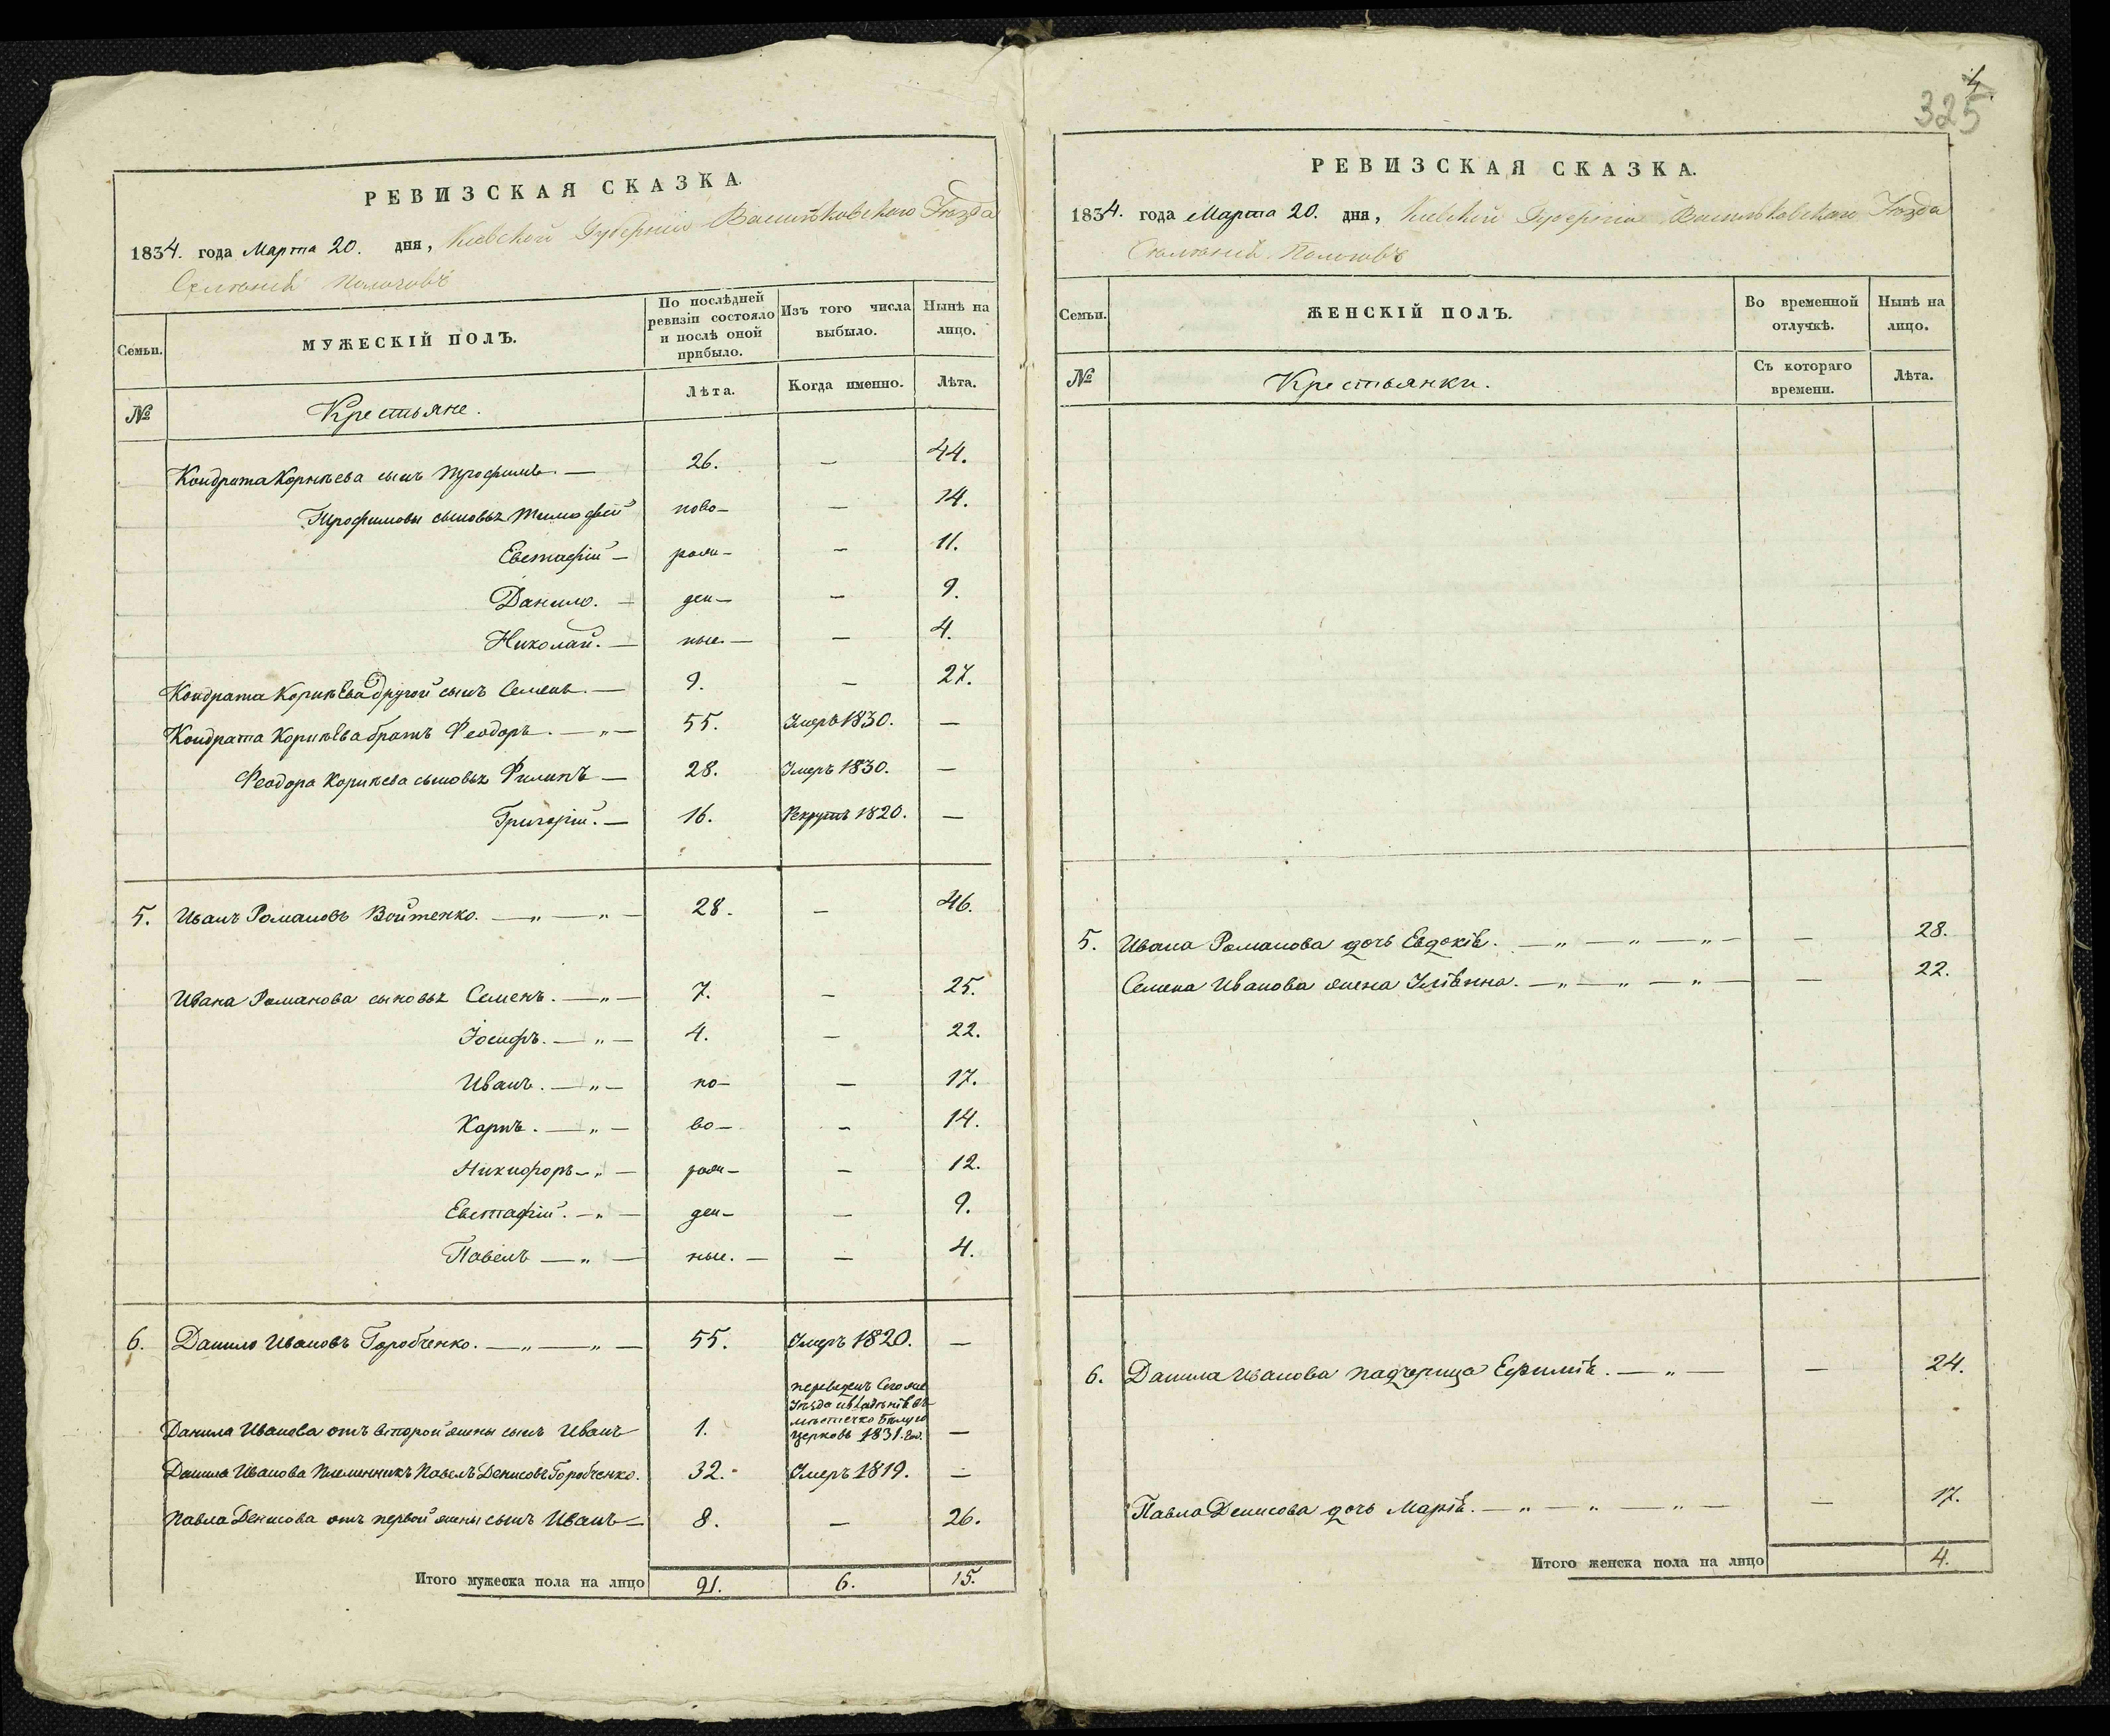 РЕВИЗСКАЯ СКАЗКА.
1834. года Марта 20. дня, Киевской Губерніи Васильковского Уезда
Селеній Пологовъ
Семьи.
МУЖЕСКІЙ ПОЛЪ.
По послѣдней ревизіи состояло и послѣ оной прибыло.
Изъ того числа выбыло.
Нынѣ на лицо.
№
Крестьяне.
Лѣта.
Когда именно.
Лѣта.
Кондрата Корнѣева сынъ Трофимъ. — 26. — 44.
Трофимовы сыновья Тимофей ново- — 14.
Евстафій — рож- — 11.
Данило. — ден- — 9.
Николай. — ные. — — 4.
Кондрата Корнѣева другой сынъ Семенъ. — 9. — 27.
Кондрата Корнѣева братъ Феодоръ. — „ — 55. Умеръ 1830. —
Феодора Корнѣева сыновья Филипъ — 28. Умеръ 1830. —
Григорій. — 16. Рекрутъ 1820. —
5. Иванъ Романовъ Войтенко. — „ — „ — 28. — 46.
Ивана Романова сыновья Семенъ. — „ — 7. — 25.
Іосифъ. — „ — 4. — 22.
Иванъ. — „ — но- — 17.
Карпъ. — „ — во- — 14.
Никифоръ — „ — рож- — 12.
Евстафій. — „ — ден- — 9.
Павелъ — „ — ные. — — 4.
6. Данило Ивановъ Горобченко. — „ — „ — 55. Умеръ 1820. —
Данила Иванова отъ второй жены сынъ Иванъ 1. переведенъ Сегоже
Уезда
мѣстечко Бѣлую
церковь 1831. год. —
Данила Иванова племенникъ Павелъ Денисовъ Горобченко. 32. Умеръ 1819. —
Павла Денисова отъ первой жены сынъ Иванъ — 8. — 26.
Итого мужеска пола на лицо 21. 6. 15.
4.
325
РЕВИЗСКАЯ СКАЗКА.
1834. года Марта 20. дня, Киевской Губерніи Васильковского Уезда
Селеній Пологовъ
Семьи.
ЖЕНСКІЙ ПОЛЪ.
Во временной отлучкѣ.
Нынѣ на лицо.
№
Крестьянки.
Съ котораго времени.
Лѣта.
5. Ивана Романова дочь Евдокія. — „ — „ — „ — — 28.
Семена Иванова жена Уліянна. — „ — „ — „ — — 22.
6. Данила Иванова падчерица Ефимія. — „ — — 24.
Павла Денисова дочь Марія. — „ — „ — „ — — 17.
Итого женска пола на лицо 4.